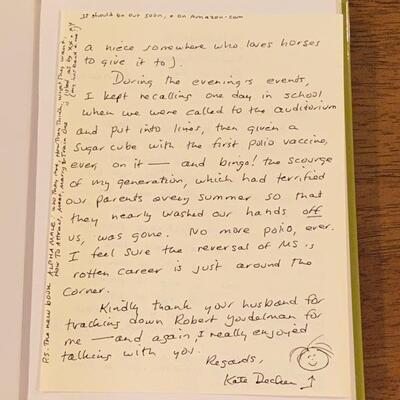 a niece somewhere who loves horses
to give it to).
During the evening's events,
I kept recalling one day in school
when we were called to the auditorium
and put into lines, then given a
sugar cube with the first polio vaccine,
ever, on it — and bingo! the scourge
of my generation, which had terrified
our parents every summer so that
they nearly washed our hands off
us, was gone. No more polio, ever.
I feel sure the reversal of MS's
rotten career is just around the
corner.
Kindly thank your husband for
tracking down Robert Youdelman for
me — and again, I really enjoyed
talking with you.
Regards,
Kate
P.S. The new book ALPHA MALE: Who They Are, How They Think, What They Want,
How To Attract, Meet, Marry & Train One
is listed as by
(my husband + me)
It should be out soon, + on Amazon.com